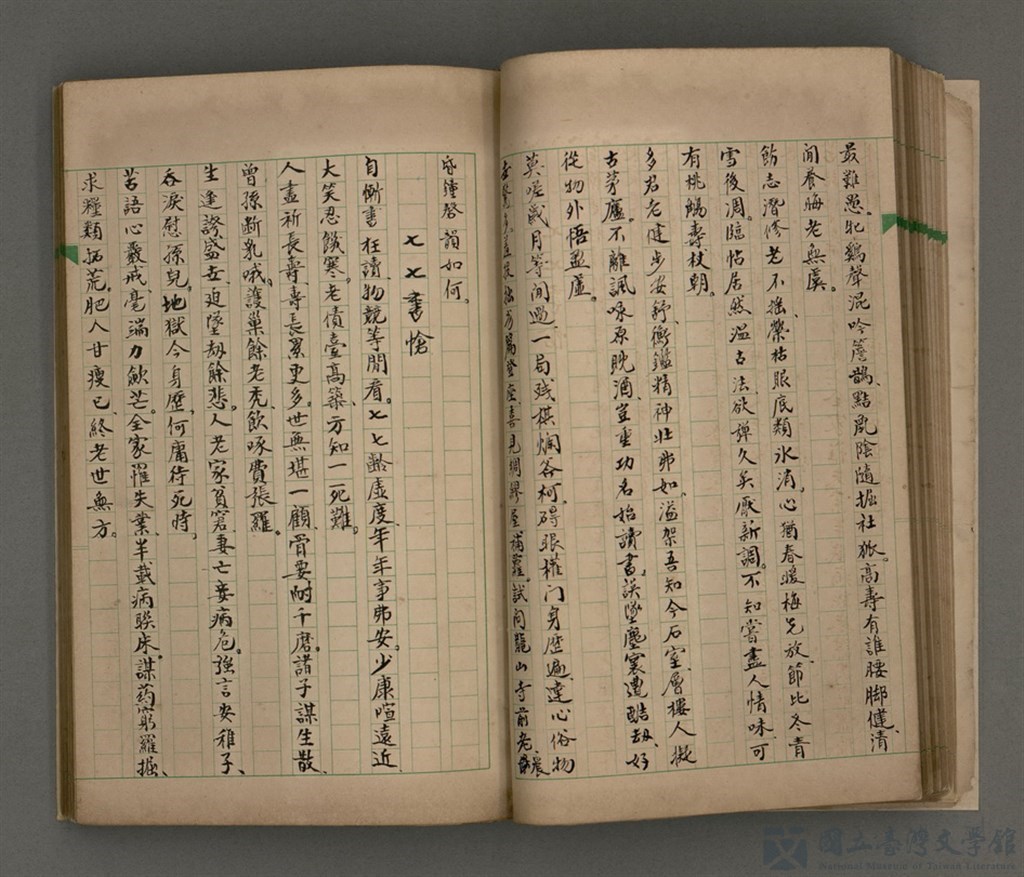 最難愚。牝鷄聲混吟簷鵲、點鳳陰隨掘社狐。高壽有誰腰脚健、清
閒養晦老無虞。
飭志潛修老不搖、榮枯眼底類氷消。心猶春暖梅先放、節比冬青
雪後凋。臨帖居然溫古法、欲彈久矣厭新調。不知嘗盡人情味、可
有桃觴壽杖朝。
多君老健步安舒、衡鑑精神壯弗如。溢架吾知今石室、層樓人擬
古茅廬。不離諷咏原耽酒、豈重功名始讀書。誤墜塵寰遭酷劫、好
從物外悟盈虛。
莫嗟歲月等閒過、一局殘棋爛斧柯。碍眼權门身歷遍、達心俗物
喜見綢繆屋補蘿。試問龍山寺前老、晨
昏鐘聲韻如何。
七七書愴
自慚書枉讀、物競等閒看。七七齡虛度、年年事弗安。少康喧遠近、
大笑忍饑寒。老債臺高築、方知一死難。
人盡祈長壽、壽長累更多。世無堪一顧、骨要耐千磨。諸子謀生散、
曾孫断乳哦。護巢餘老禿、飲啄費張羅。
生逢誇盛世、迫墜劫餘悲。人老家貧窘、妻亡妾病危。強言安稚子、
吞淚慰孫兒。地獄今身歷、何庸待死時。
苦語心嚴戒、毫端力斂芒。全家罹失業、半載病睽床。謀药窮羅掘、
求糧類拓荒。肥人甘瘦己、終老世無方。
國立臺灣文學館
National Museum of Taiwan Literature